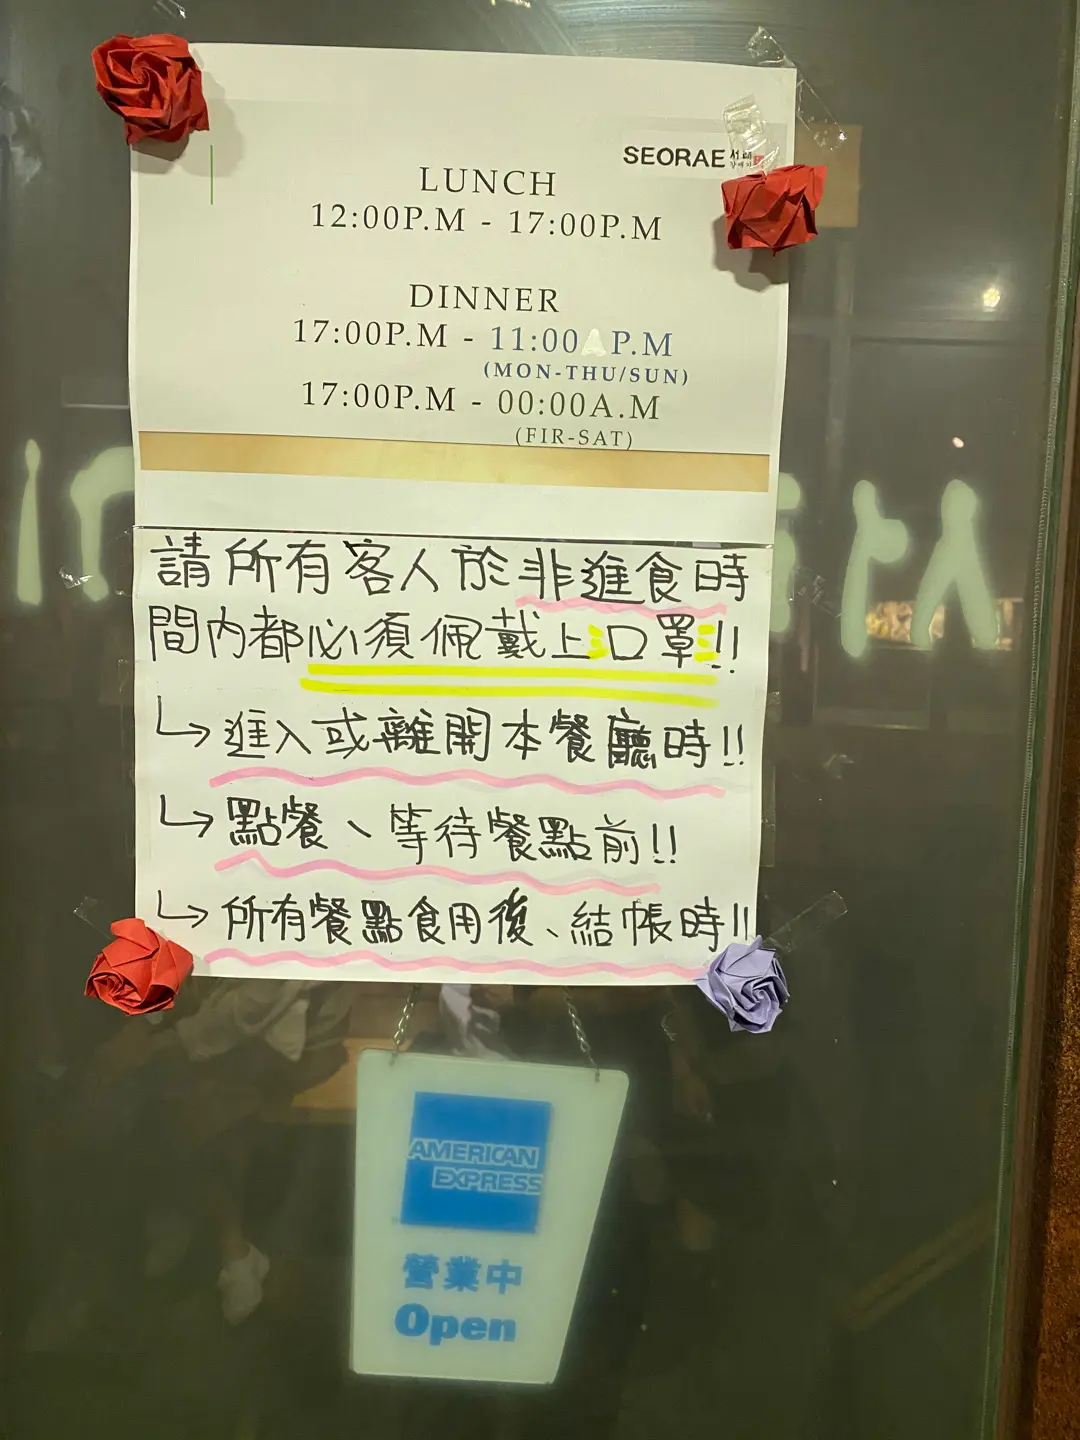 SEORAE 서래
LUNCH
12:00P.M - 17:00P.M
DINNER
17:00P.M - 11:00 P.M
(MON-THU/SUN)
17:00P.M - 00:00A.M
(FIR-SAT)
請所有客人於非進食時
間內都必須佩戴上口罩!!
↳進入或離開本餐廳時!!
↳點餐、等待餐點前!!
↳所有餐點食用後、結帳時!!
AMERICAN
EXPRESS
營業中
Open